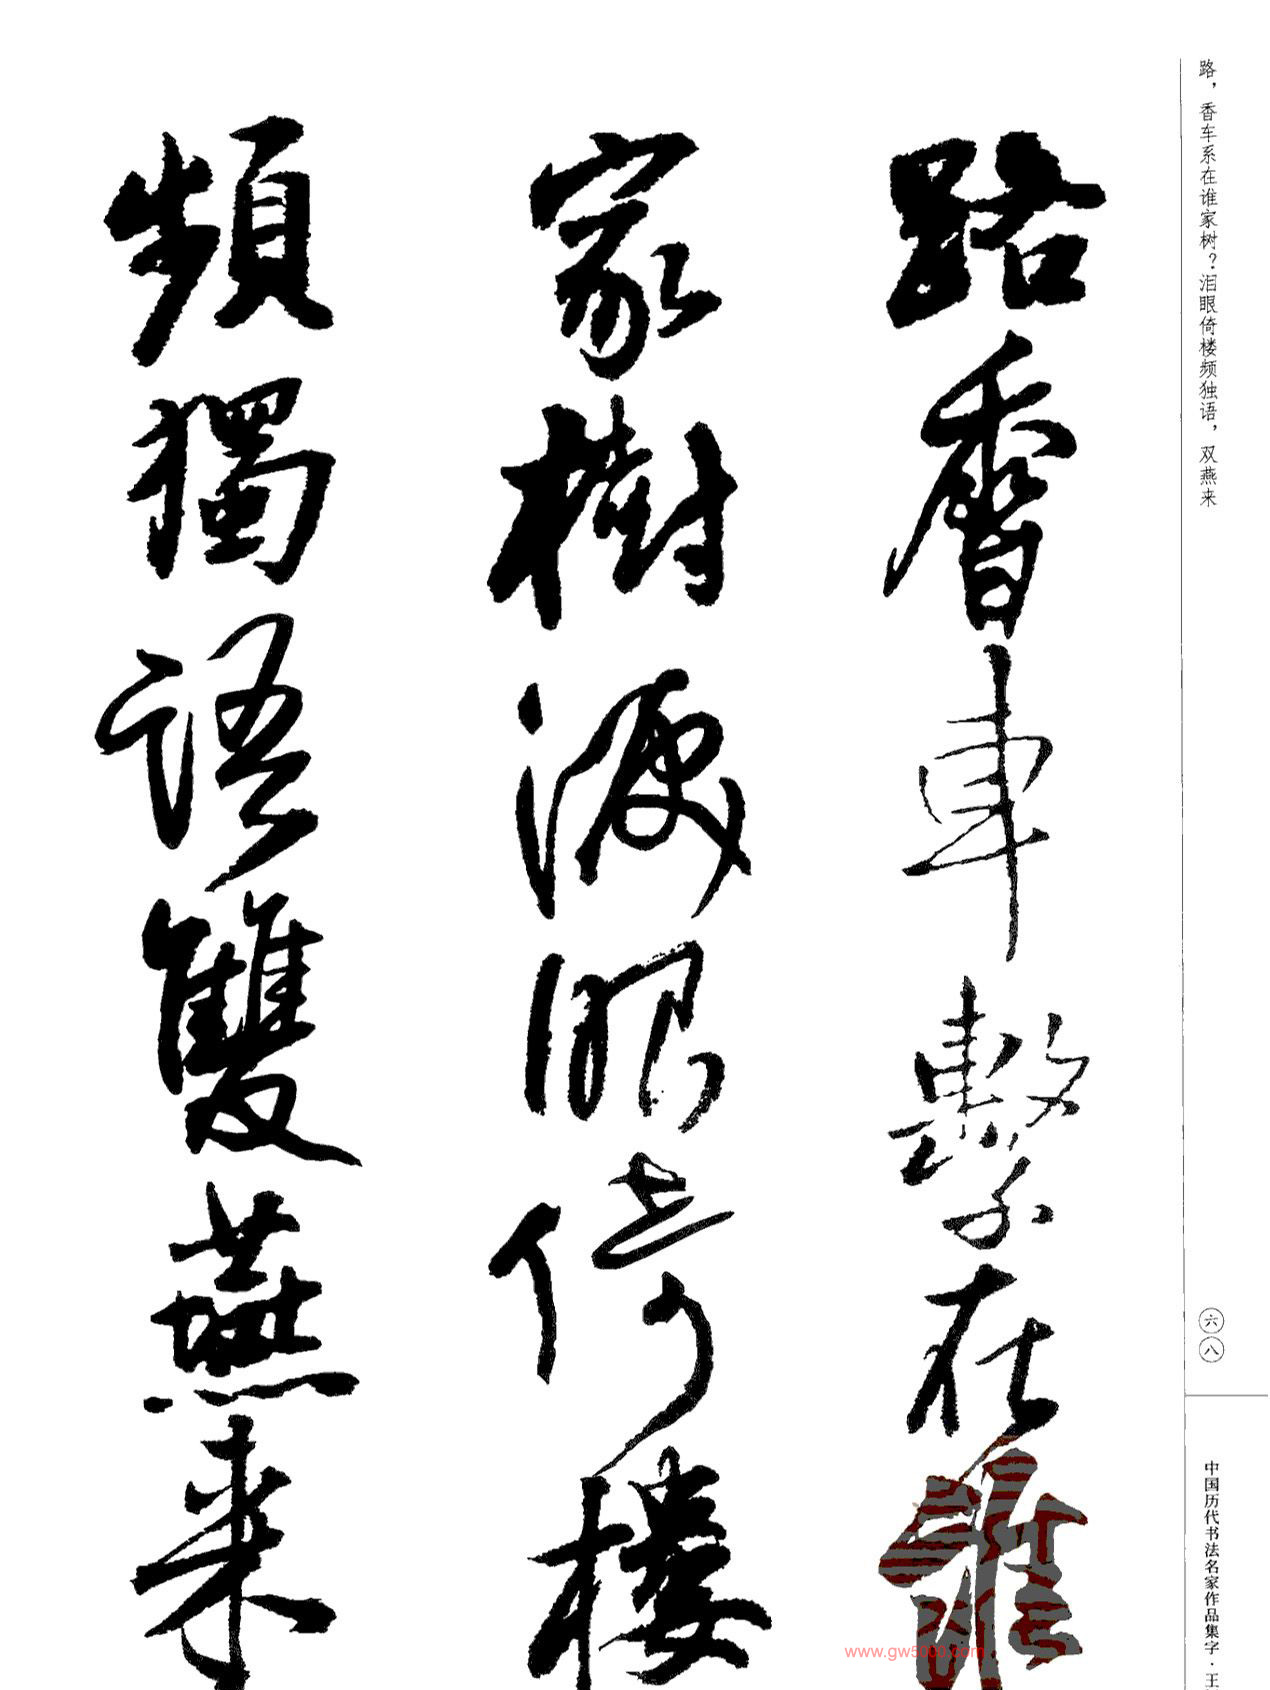 路，香车系在谁家树？泪眼倚楼频独语，双燕来
路香車繫在誰
家樹淚眼倚樓
頻獨語雙燕來
六八
中国历代书法名家作品集字·王
www.gw5000.com